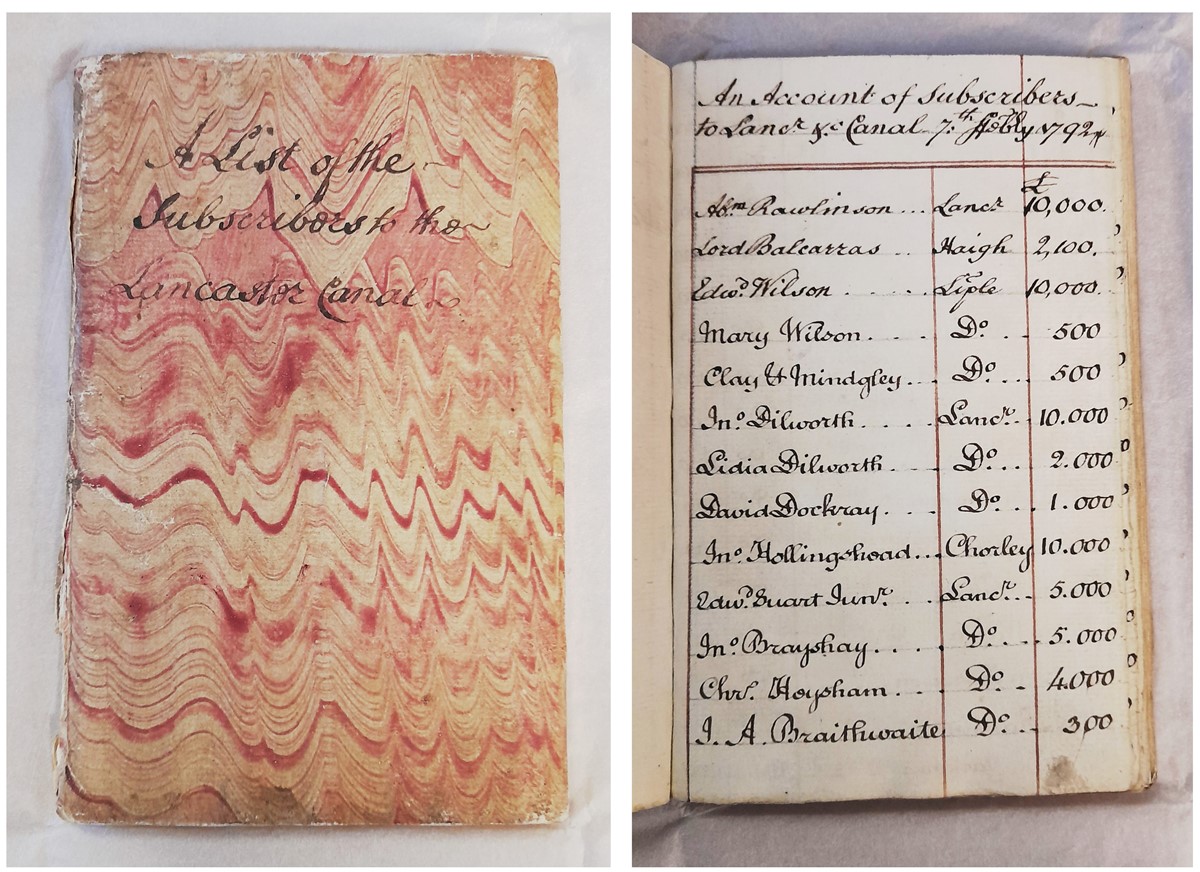 A List of the
Subscribers to the
Lancaster Canal
An Account of Subscribers
to Lancr &c Canal 7th Febly 1792
£
Abm Rawlinson ... Lancr 10,000.
Lord Balcarras .. Haigh 2,100.
Edwd Wilson . . . . Liple 10,000.
Mary Wilson . . . . Do . . 500
Clay & Mindgley ... Do ... 500
Jno Dilworth . . . . Lancr . 10.000
Lidia Dilworth . . . Do ... 2.000
David Dockray . . . Do . . 1.000
Jno Hollingshead ... Chorley 10.000
Edwd Suart Junr . . . Lancr .. 5.000
Jno Brayshay . . . . Do ... 5.000
Chrs Heysham . . . Do . 4.000
J. A. Braithwaite Do .. 300